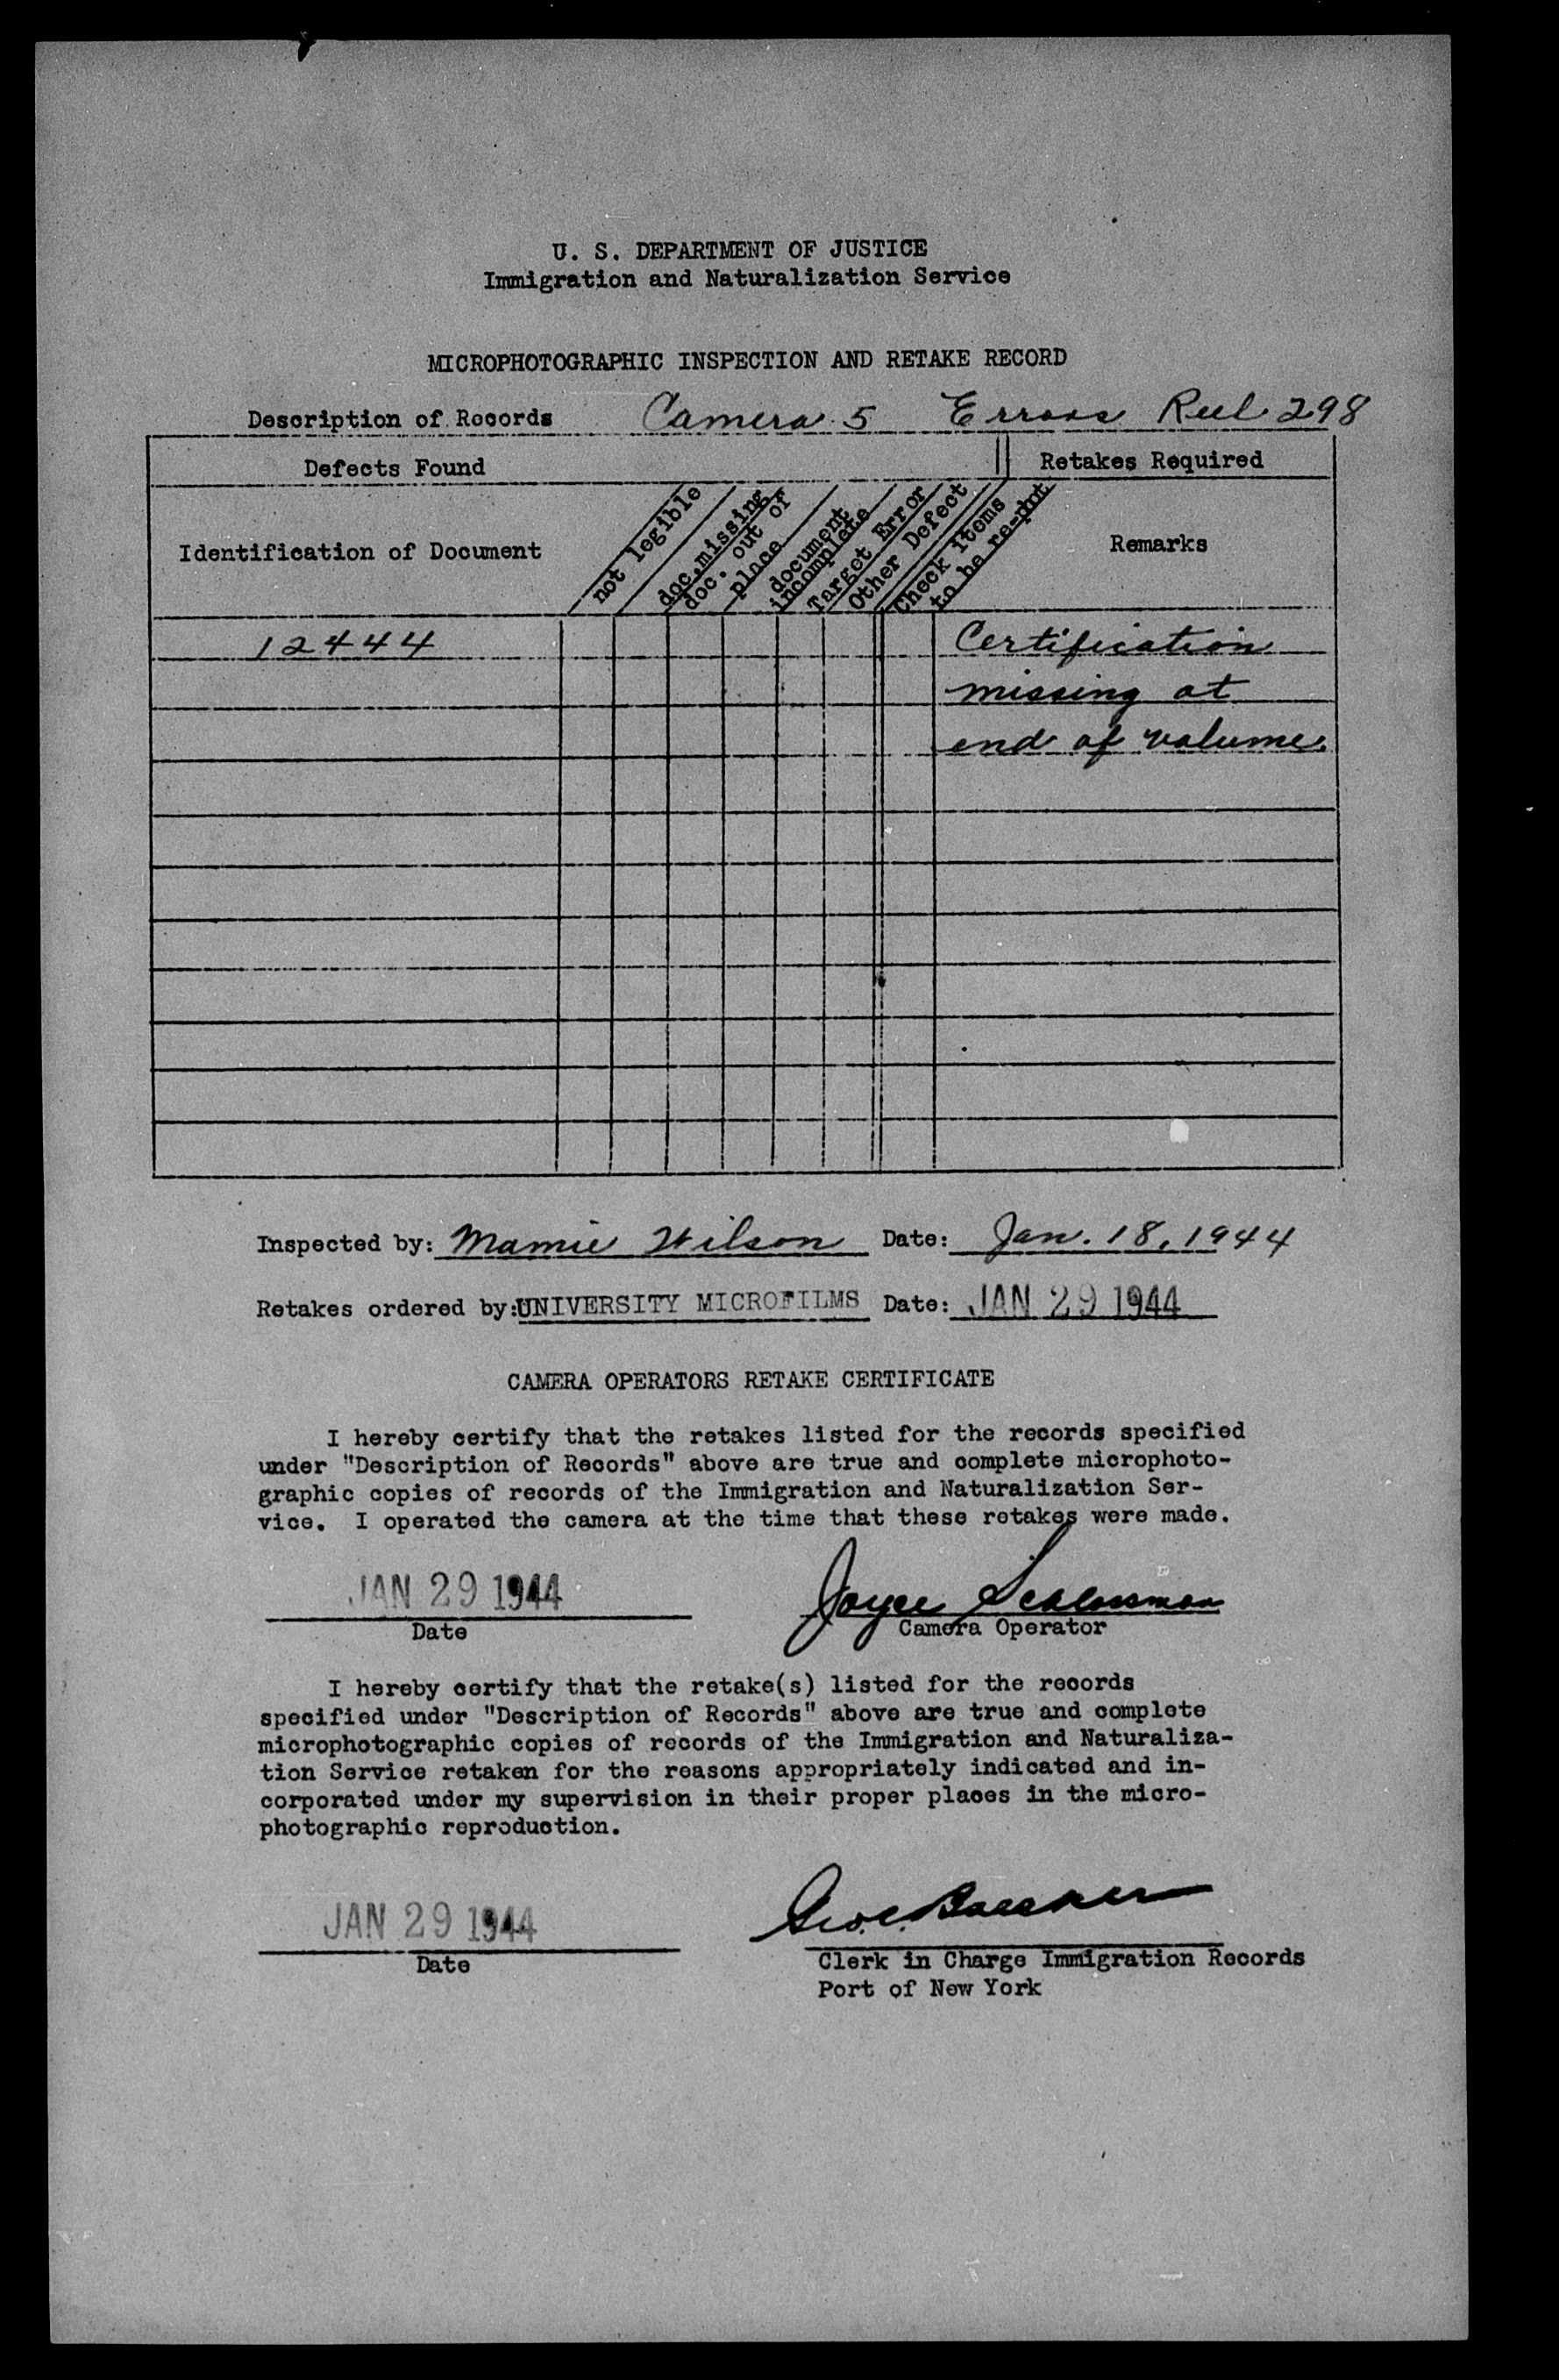 U. S. DEPARTMENT OF JUSTICE
Immigration and Naturalization Service
MICROPHOTOGRAPHIC INSPECTION AND RETAKE RECORD
Description of Records Camera 5 Errors Reel 298
Defects Found Retakes Required
Identification of Document
not legible
doc. missing
doc. out of
place
document
incomplete
Target Error
Other Defect
Check items
to be re-phot
Remarks
12444 Certification
missing at
end of volume.
Inspected by: Mamie Wilson Date: Jan. 18, 1944
Retakes ordered by: UNIVERSITY MICROFILMS Date: JAN 29 1944
CAMERA OPERATORS RETAKE CERTIFICATE
I hereby certify that the retakes listed for the records specified
under "Description of Records" above are true and complete microphoto-
graphic copies of records of the Immigration and Naturalization Ser-
vice. I operated the camera at the time that these retakes were made.
JAN 29 1944 Joyce Schlossman
Date Camera Operator
I hereby certify that the retake(s) listed for the records
specified under "Description of Records" above are true and complete
microphotographic copies of records of the Immigration and Naturaliza-
tion Service retaken for the reasons appropriately indicated and in-
corporated under my supervision in their proper places in the micro-
photographic reproduction.
JAN 29 1944 Geo. C.
Date Clerk in Charge Immigration Records
Port of New York